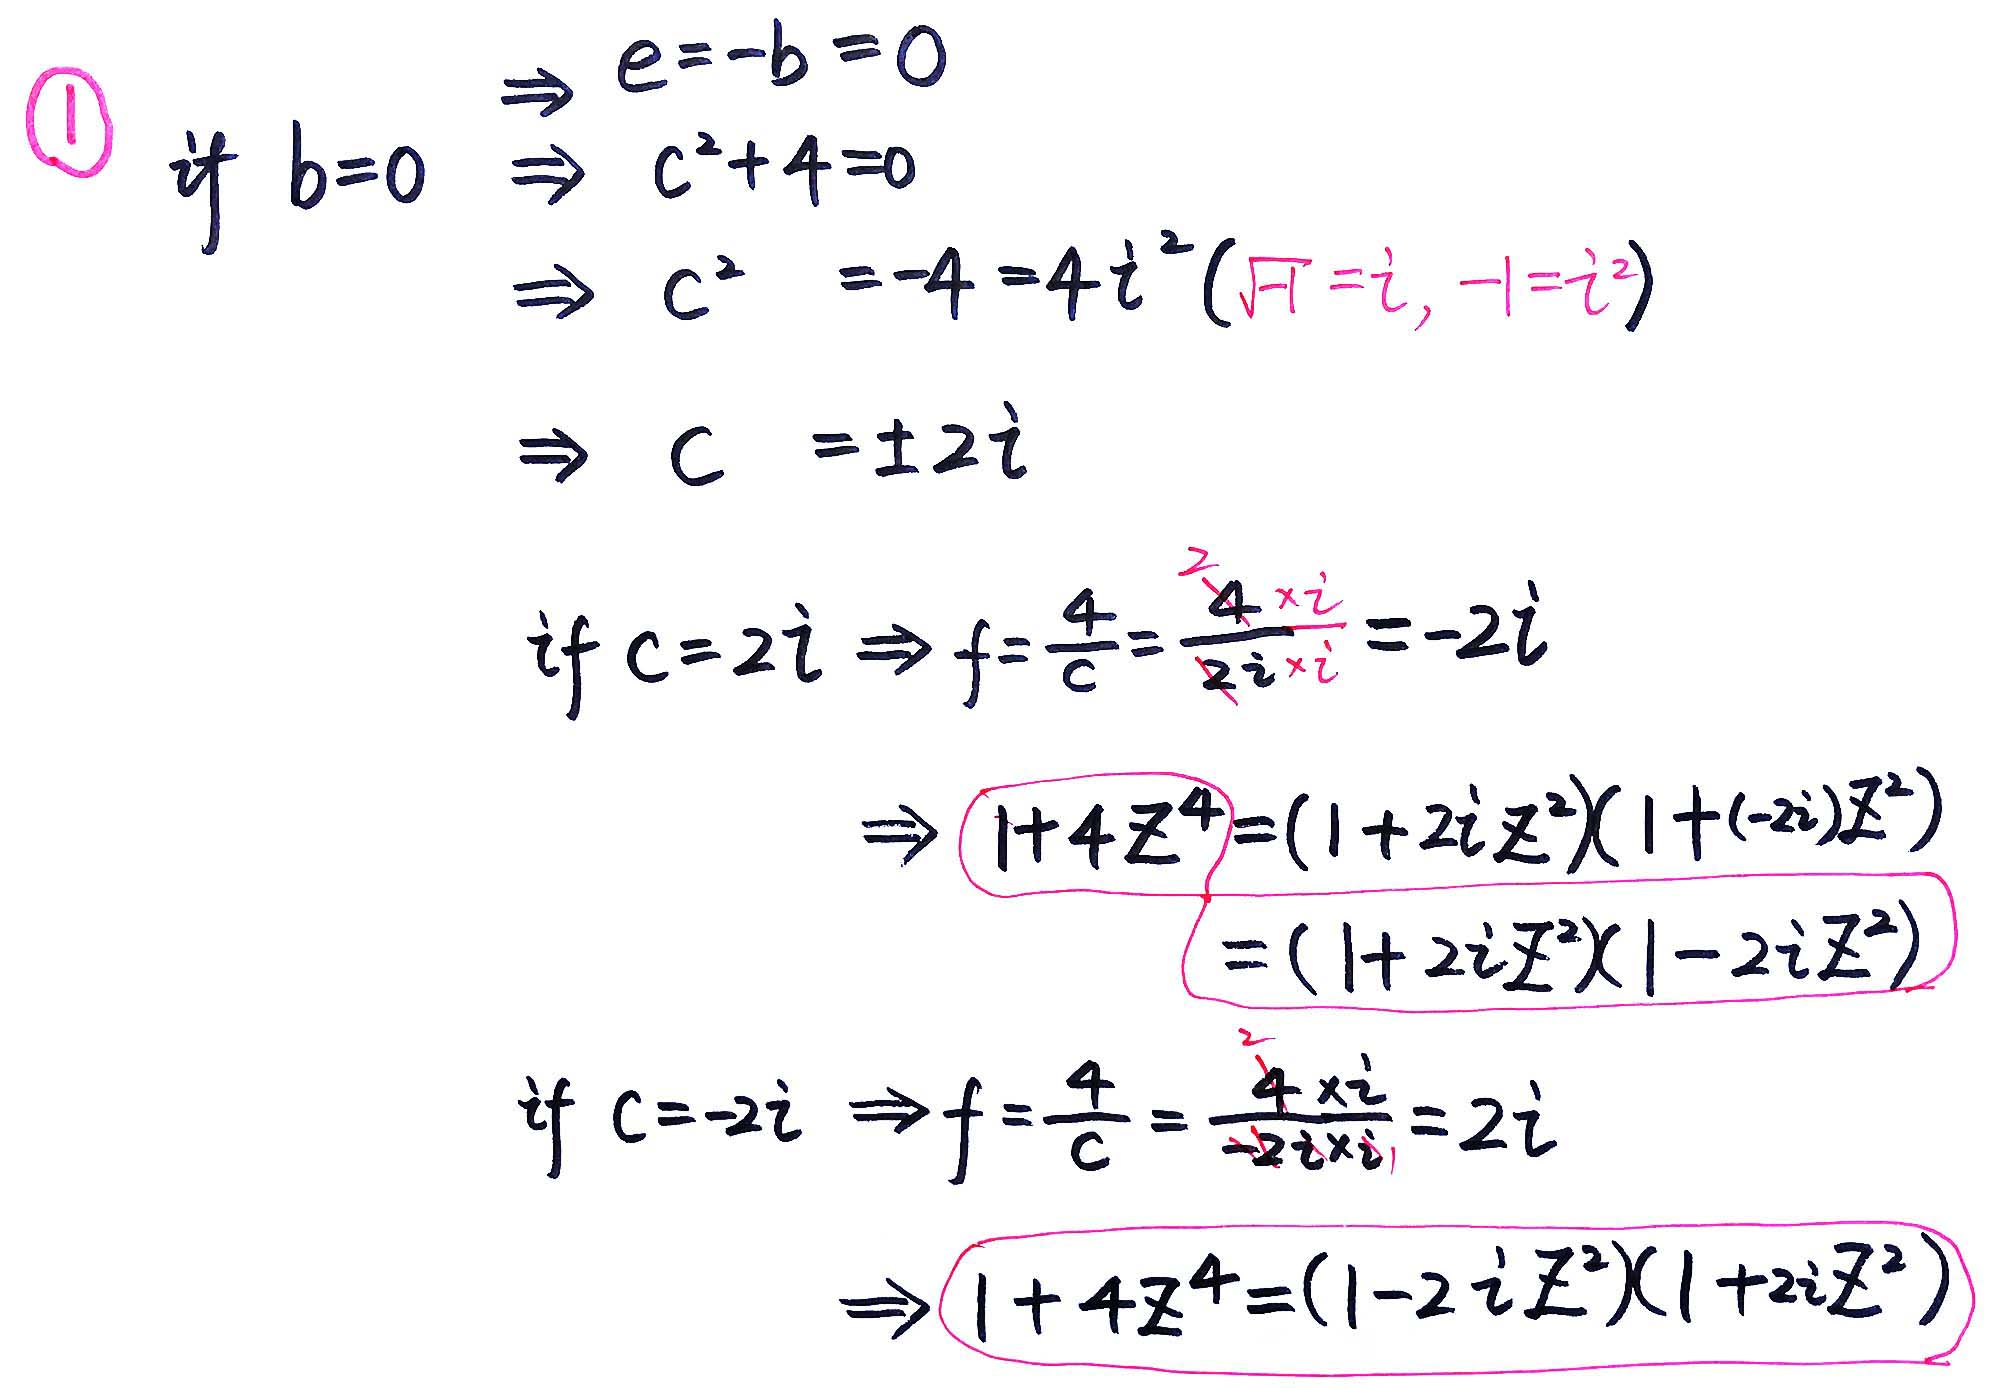 ① if b=0 ⇒ e=-b=0
⇒ c²+4=0
⇒ c² =-4=4i² (√-1=i, -1=i²)
⇒ c =±2i
if c=2i ⇒ f=4/c=4×i/2i×i=-2i
2
⇒ 1+4Z⁴=(1+2iZ²)(1+(-2i)Z²)
=(1+2iZ²)(1-2iZ²)
if c=-2i ⇒ f=4/c=4×i/-2i×i=2i
2
1
⇒ 1+4Z⁴=(1-2iZ²)(1+2iZ²)